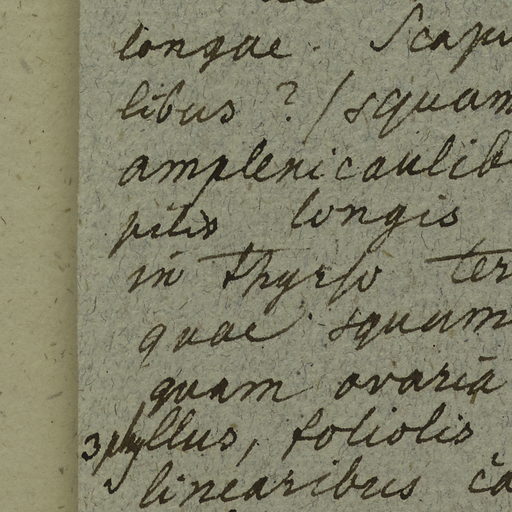 longae. Scapi
libus? / squam
amplexicaulib
pilis longis
in thyrso ter
quae squam
quam ovaria
3phyllus, foliolis
linearibus ca